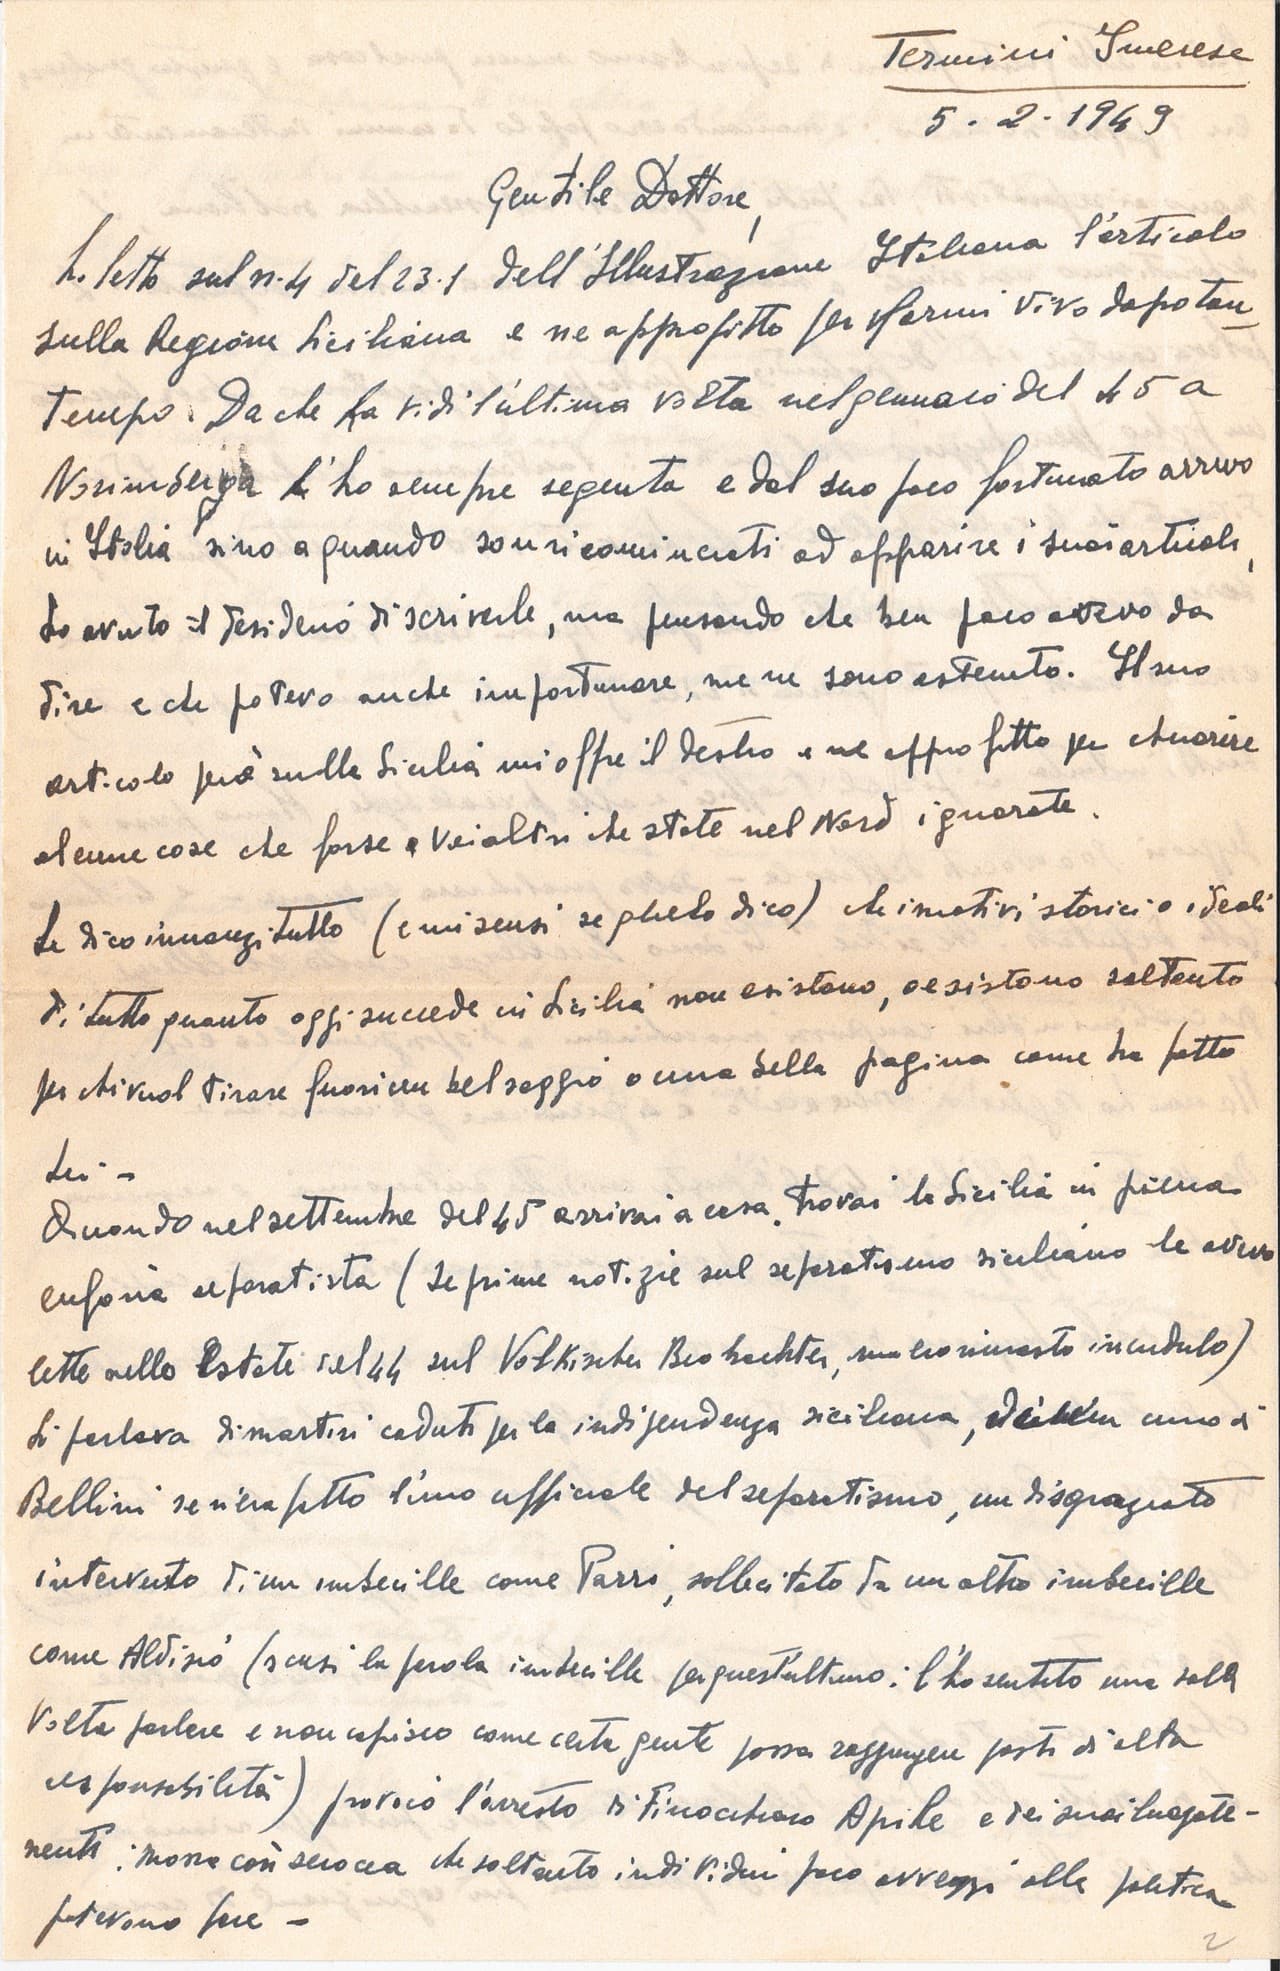 Termini Imerese
5.2.1949
Gentile Dottore,
ho letto sul n. 4 del 23.1 dell'Illustrazione Italiana l'articolo
sulla Regione Siciliana e ne approfitto per farmi vivo dopo tan
tempo. Da che La vidi l'ultima volta nel gennaio del 45 a
Norimberga L'ho sempre seguita e dal suo poco fortunato arrivo
in Italia sino a quando son ricominciati ad apparire i suoi articoli,
ho avuto il desiderio di scriverle, ma pensando che ben poco avevo da
dire e che potevo anche importunare, me ne sono astenuto. Il suo
articolo però sulla Sicilia mi offre il destro e ne approfitto per chiarire
alcune cose che forse Voi altri che state nel Nord ignorate.
Le dico innanzi tutto (e mi scusi se glielo dico) che i motivi storici o ideali
di tutto quanto oggi succede in Sicilia non esistono, o esistono soltanto
per chi vuol tirare fuori un bel saggio o una bella pagina come ha fatto
Lei -
Quando nel settembre del 45 arrivai a casa, trovai la Sicilia in piena
euforia separatista (Le prime notizie sul separatismo siciliano le avevo
lette nello Estate del 44 sul Volkischer Beobachter, ma ero rimasto incredulo)
Si parlava di martiri caduti per la indipendenza siciliana, un inno di
Bellini se n'era fatto l'inno ufficiale del separatismo, un disgraziato
intervento di un imbecille come Parri, sollecitato da un altro imbecille
come Aldisio (scusi la parola imbecille per quest'ultimo: l'ho sentito una sola
volta parlare e non capisco come certa gente possa raggiungere posti di alta
responsabilità) provocò l'arresto di Finocchiaro Aprile e dei suoi luogote-
nenti: mossa così sciocca che soltanto individui poco avvezzi alla politica
potevano fare -
2